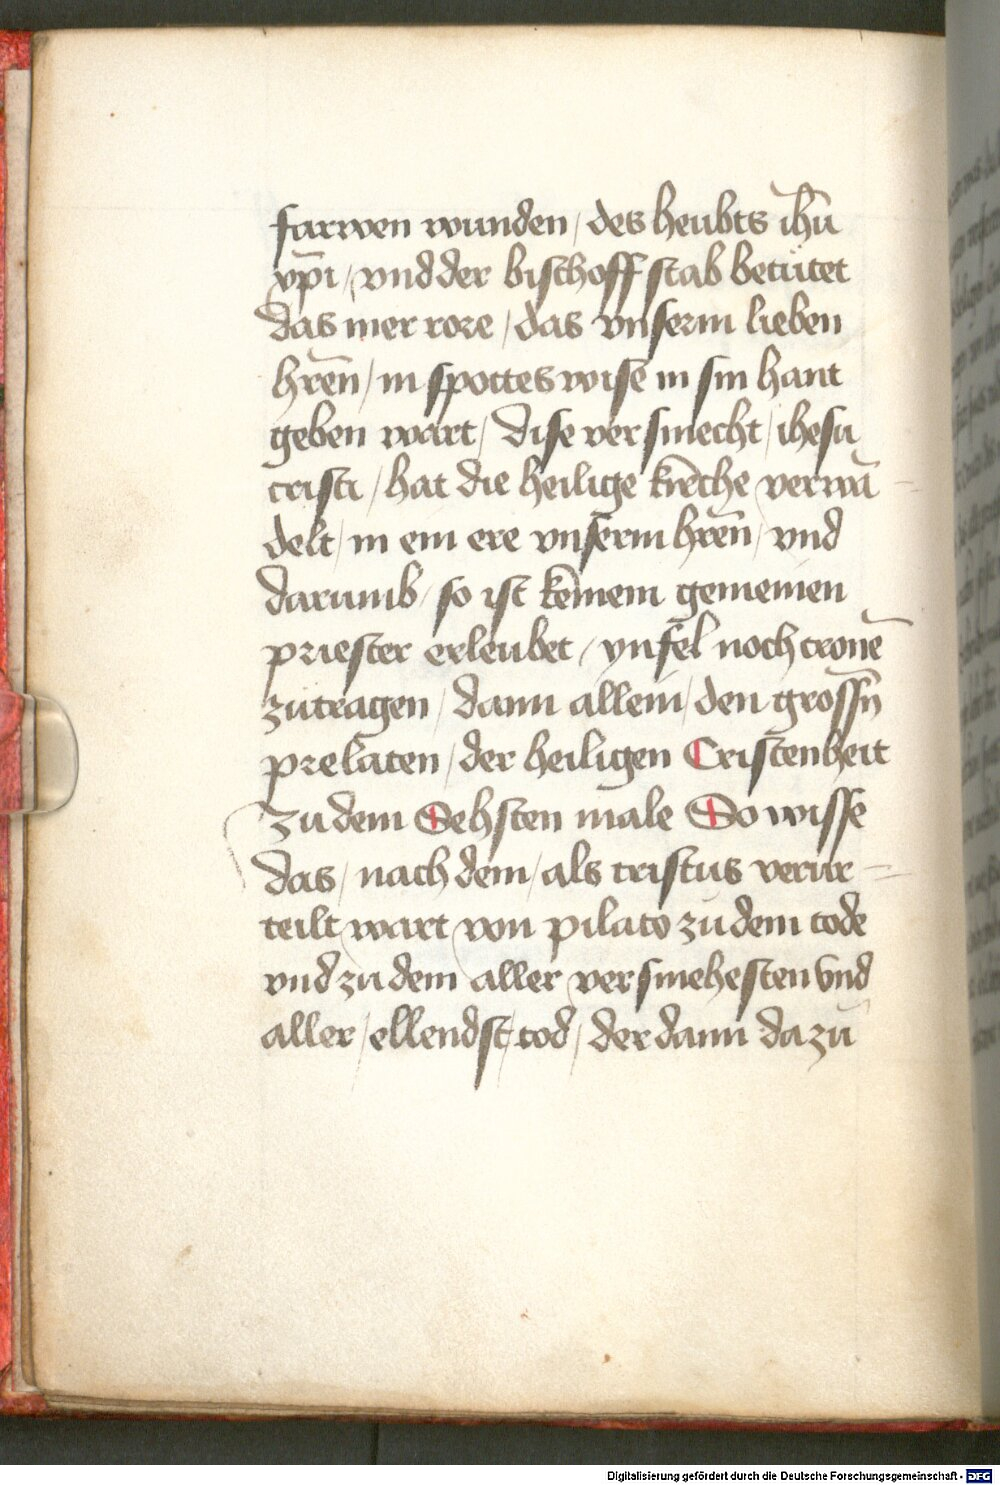 farwen wunden / des heubts ihū
xp̄i / vnd der bischoff stab betütet
das mer rore / das vnserm lieben
hrēn / in spottes wise in sin hant
geben wart / dise versmecht / ihesu
cristi / hat die heilige kirche verwā
delt / in ein ere vnserm hrēn / vnd
darumb / so ist keinem gemeinen
priester erleubet / ynfel noch cronē
zütragen / dann allein / den grossn̄
prelaten / der heiligen Cristenheit
zu dem Sehsten male So wisse
das / nach dem / als cristus verur=
teilt wart von pilato zü dem tode
vnd zü dem aller versmehesten vnd
aller / ellendst / tod / der dann dazü
Digitalisierung gefördert durch die Deutsche Forschungsgemeinschaft - DFG